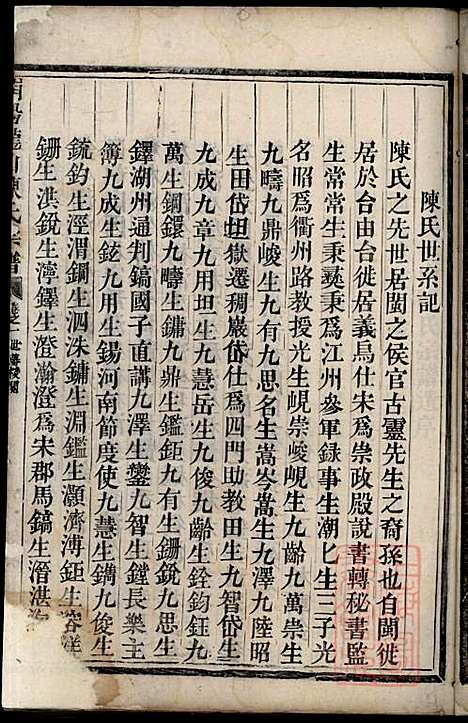 陳氏世系記
陳氏之先世居閩之侯官古靈先生之裔孫也自閩徙
居於台由台徙居義烏仕宋爲崇政殿說書轉秘書監
生常常生秉彞秉爲江州參軍録事生潮匕生三子光
名昭爲衢州路教授光生峴崇峻峴生九齡九萬崇生
九疇九鼎峻生九有九思名生嵩岑嵩生九澤九陸昭
生田岱坦獄遷稠巖岱仕爲四門助教田生九智岱生
九成九章九用坦生九慧岳生九俊九齡生銓鈞鈺九
萬生鋼鐶九疇生鏞九鼎生鑑鉅九有生鉶銳九思生
鐸湖州通判鎬國子直講九澤生鑾九智生鏜長樂主
簿九成生鉉九用生錫河南節度使九慧生鐫九俊生
銃鈞生涇渭鋼生泗洙鏞生淵鑑生灝濟溥鉅生溶洋
鉶生洪銳生濘鐸生澄瀚澄爲宋郡馬鎬生溍湛
陳氏宗譜